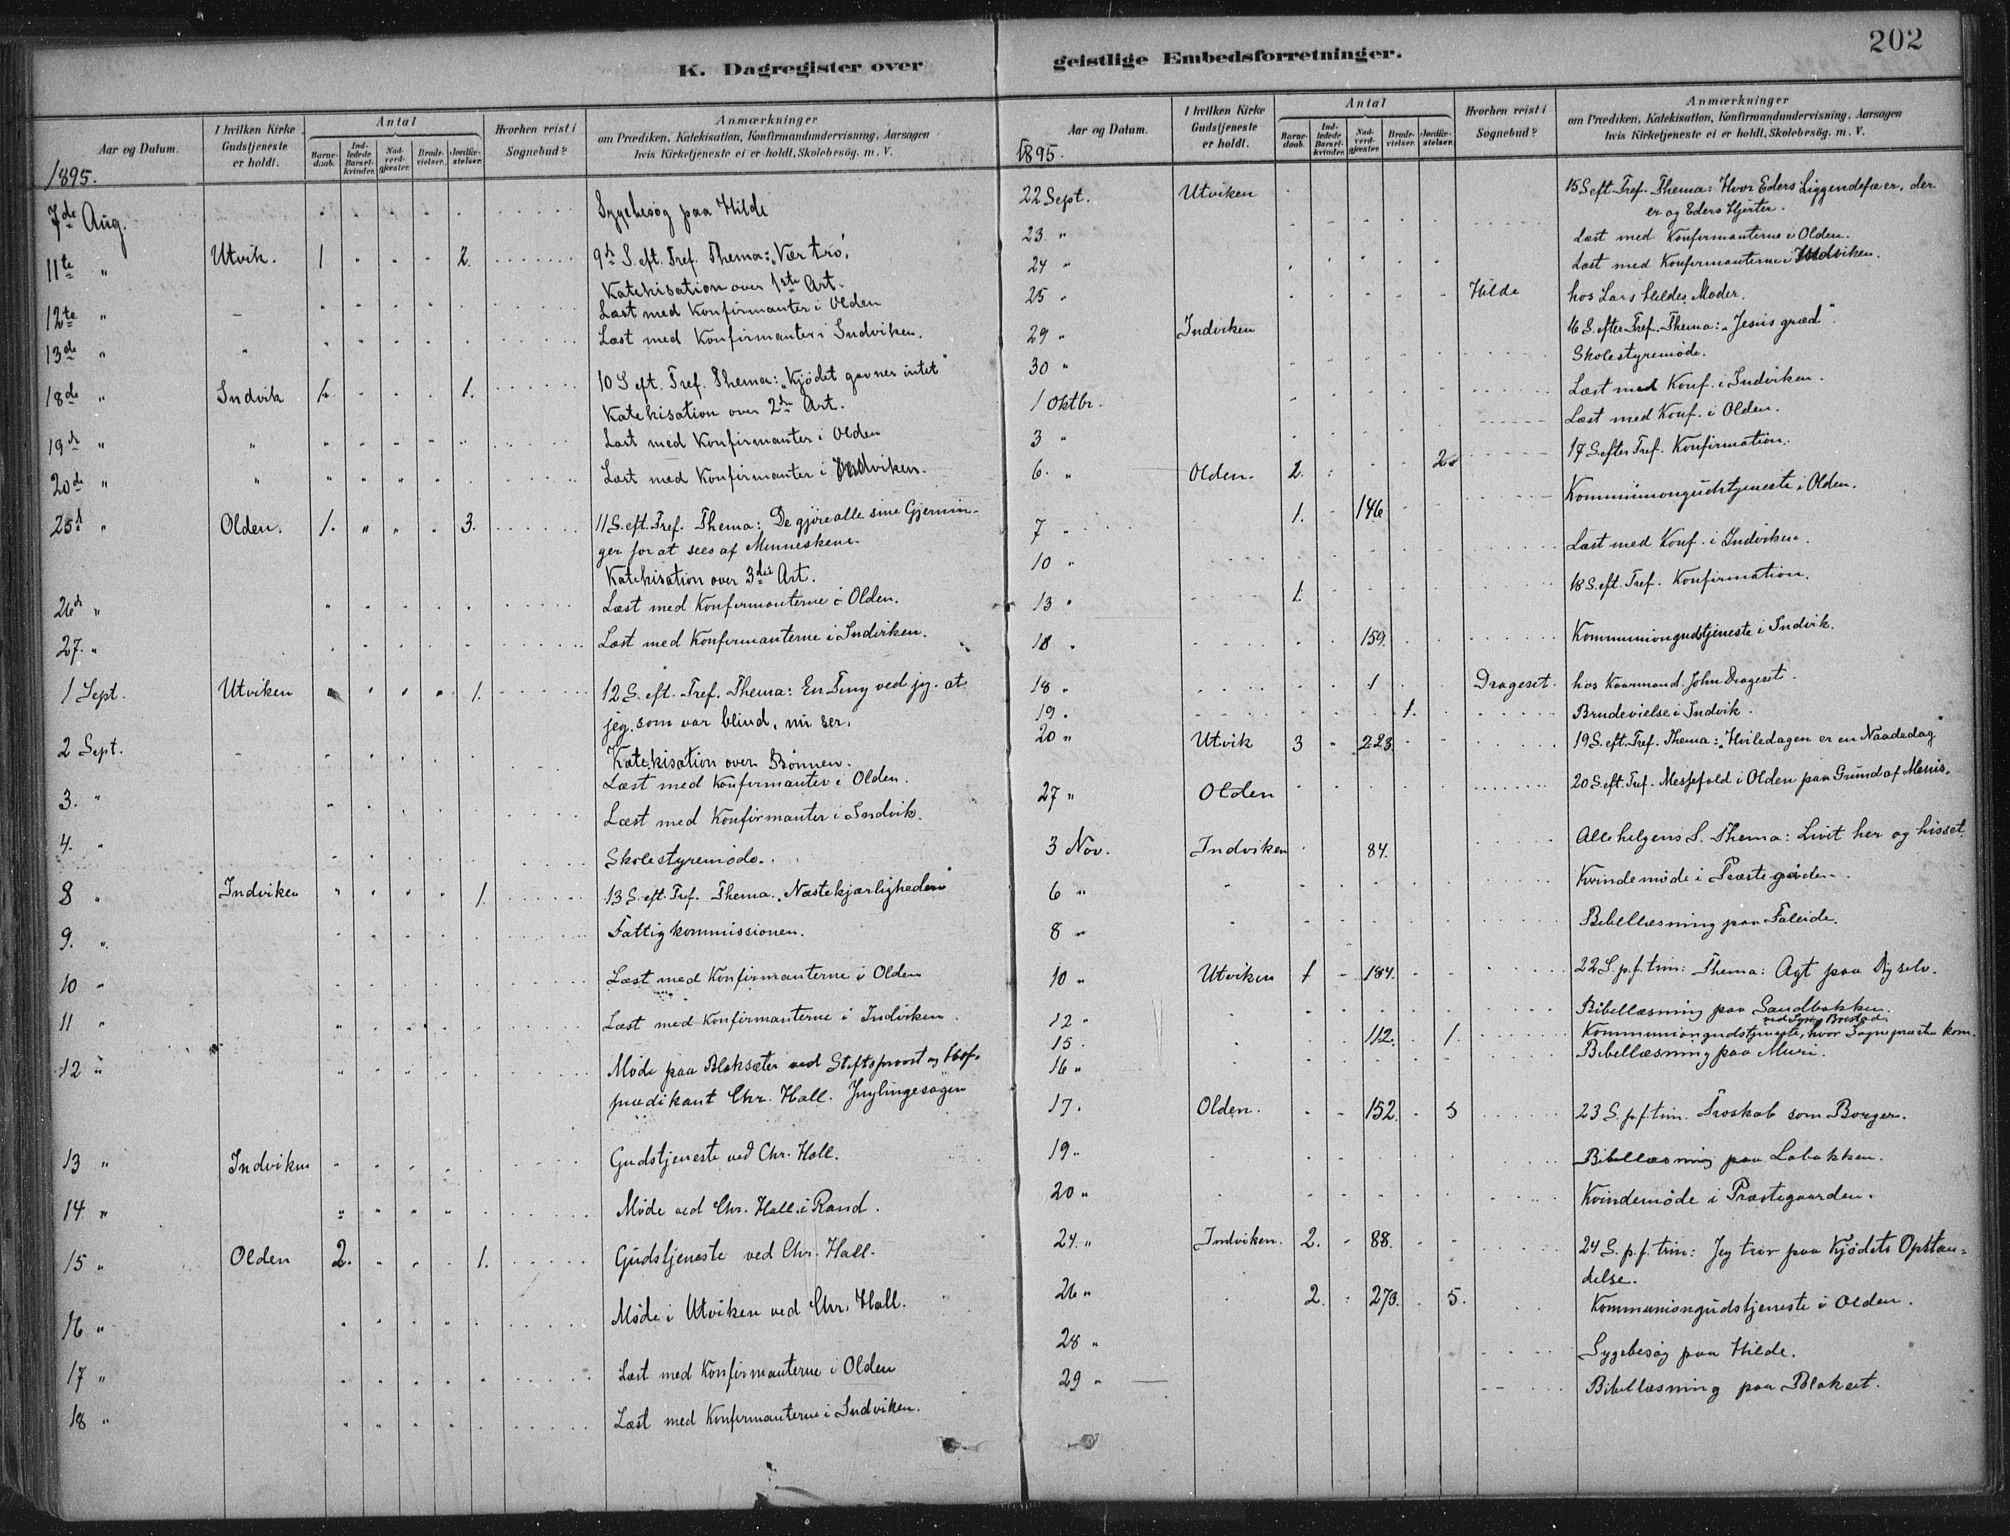 202
K. Dagregister over geistlige Embedsforretninger.
Aar og Datum.
I hvilken Kirke Gudstjeneste er holdt.
Antal
Barnedaab.
Indledede Barselkvinder.
Nadverdgjester.
Brudevielser.
Jordfæstelser.
Hvorhen reist i Sognebud?
Anmærkninger
om Prædiken, Katekisation, Konfirmandundervisning, Aarsagen
hvis Kirketjeneste ei er holdt, Skolebesøg. m. V.
1895.
7de Aug. Sygebesøg paa Hilde
11te " Utvik. 1 2. 9de S. eft. Tref. Thema: "Vær tro".
Katekisation over 1ste Art.
12te " Læst med Konfirmanter i Olden
13de " Læst med Konfirmanter i Indviken.
18de " Indvik 1. 1. 10 S eft. Tref. Thema: "Kjødet gavner intet"
Katekisation over 2den Art.
19de " " Læst med Konfirmanter i Olden
20de " " Læst med Konfirmanter i Indviken.
25de " Olden. 1. " " 3. 11 S. eft. Tref. Thema: De gjøre alle sine Gjernin-
ger for at sees af Menneskene.
Katekisation over 3die Art.
26de " Læst med Konfirmanterne i Olden.
27. " Læst med Konfirmanterne i Indviken.
1 Sept. Utviken 1. 12 S. eft. Tref. Thema: En Ting ved jeg, at
jeg, som var blind, nu ser.
Katekisation over Bønnen.
2 Sept. Læst med Konfirmanter i Olden.
3. " Læst med Konfirmanter i Indvik.
4. " Skolestyremøde.
8 " Indviken 1. 13 S. eft. Tref. Thema. "Næstekjærligheden"
9. " Fattigkommissionen.
10 " Læst med Konfirmanterne i Olden
11 " Læst med Konfirmanterne i Indviken.
12 " Møde paa Blaksæter ved Stiftsprovst og Hof-
prædikant Chr. Hall. Ynglingesagen
13 " Indviken Gudstjeneste ved Chr. Hall.
14 " Møde ved Chr. Hall i Rand.
15 " Olden 2. 1. Gudstjeneste ved Chr. Hall.
16 " Møde i Utviken ved Chr. Hall.
17 " Læst med Konfirmanterne i Olden
18 " Læst med Konfirmanterne i Indviken.
Aar og Datum.
I hvilken Kirke Gudstjeneste er holdt.
Antal
Barnedaab.
Indledede Barselkvinder.
Nadverdgjester.
Brudevielser.
Jordfæstelser.
Hvorhen reist i Sognebud?
Anmærkninger
om Prædiken, Katekisation, Konfirmandundervisning, Aarsagen
hvis Kirketjeneste ei er holdt, Skolebesøg. m. V.
1895.
22 Sept. Utviken 15 S eft. Tref. Thema: Hvor Eders Liggendefæ er, der
er og Eders Hjerter.
23. " Læst med Konfirmanterne i Olden.
24 " Læst med Konfirmanterne i Indviken.
25 " Hilde hos Lars Hildes Moder.
29 " Indviken 16 S. efter Tref. Thema: "Jesus græd".
30 " Skolestyremøde.
1 Oktbr. Læst med Konf. i Indviken.
3 " Læst med Konf. i Olden.
6. " Olden. 2. 2. 17 S efter Tref. Konfirmation.
7 " 1. 146 Kommuniongudstjeneste i Olden.
10 " Læst med Konf. i Indviken.
13 " 1. 18 S. eft. Tref. Konfirmation.
18 " 159. Kommuniongudstjeneste i Indvik.
18 " 1 Drageset. hos Kaarmand John Drageset.
19. 1. Brudevielse i Indvik.
20 " Utvik 3 223. 19 S. eft. Tref. Thema: "Hviledagen er en Naadedag"
27 " Olden 20 S. eft. Tref. Messefald i Olden paa Grund af Menis.
3 Nov. Indviken 84. Allehelgens S. Thema: Livit her og hisset.
6 " Kvindemøde i Præstegården.
8 " Bibellæsning paa Faleide.
10 " Utviken 1 184. 22 S. p. f. trin: Thema: Agt paa Dig selv.
12 " Bibellæsning paa Sandbakken.
15. 112. 1. Kommuniongudstjeneste, hvor Sognepræsten kom.
16 " Bibellæsning paa Muri.
17. Olden. 152. 5 23 S. p. f. trin. Troskab som Borger.
19 " Bibellæsning paa Løbakken.
20 " Kvindemøde i Præstegaarden.
24. " Indviken. 2. 88. 24 S. p. f. trin: Jeg tror paa Kjødets Opstan-
delse.
26 " 2. 273. 5. Kommuniongudstjeneste i Olden.
28 " Sygebesøg paa Hilde.
29 " Bibellæsning paa Blakset.